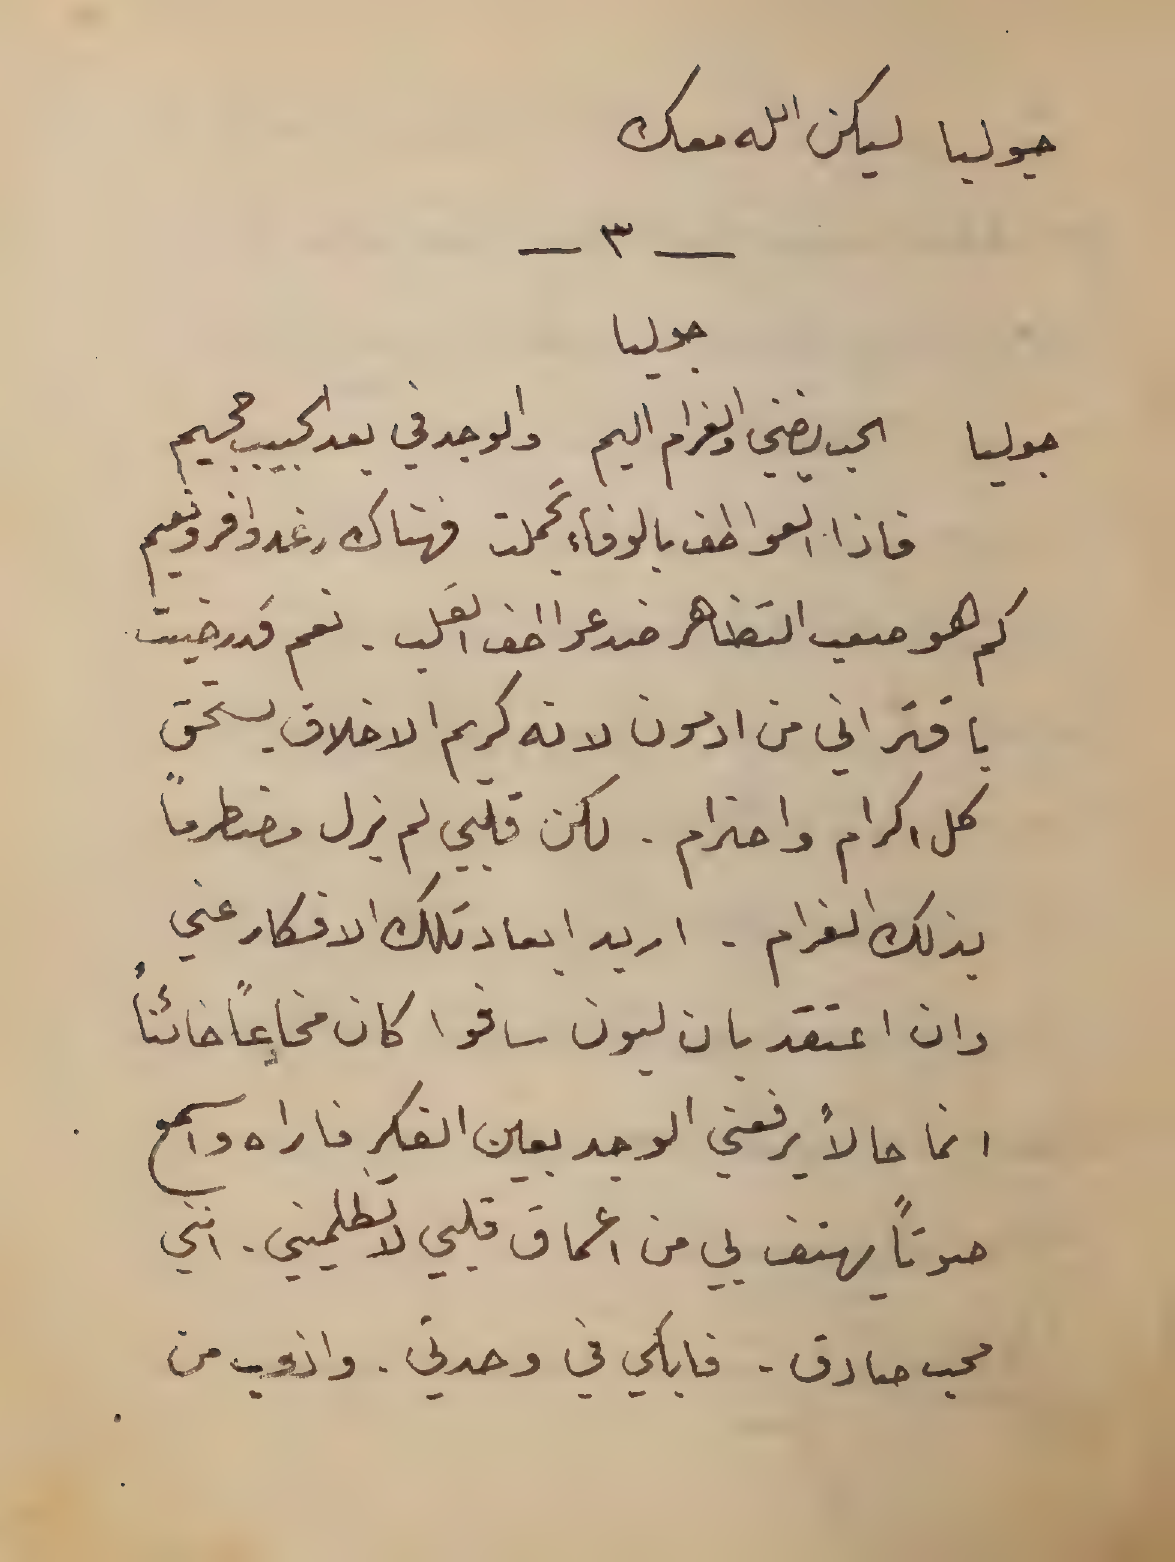 جوليا ليكن الله معك
— ٣ —
جوليا
جوليا الحب يضني والغرام اليم والوجد في بعد الحبيب جحيم
فاذا العواطف بالوفاء تجملت فهناك رغد وافر ونعيم
كم هو صعب التظاهر ضد عواطف القلب . نعم قد رضيت
باقتراني من ادمون لانه كريم الاخلاق يستحق
كل اكرام واحترام . لكن قلبي لم يزل مضطرماً
بذلك الغرام . اريد ابعاد تلك الافكار عني
وان اعتقد بان ليون سافوا كان مخادعاً خائناً
انما حالاً يرفعني الوجد بعين الفكر فاراه واسمع
صوتاً يهتف بي من اعماق قلبي لا تظلميني . انني
محب صادق . فابكي في وحدتي . واذوب من